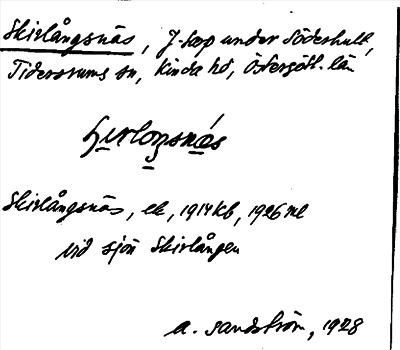 Skirlångsnäs, f. torp under Söderhult,
Tidersrums sn, Kinda hd, Östergötl. län
Skirlångsnäs, ek, 1914 kb, 1926 ml
vid sjön Skirlången
A. Sandström, 1928